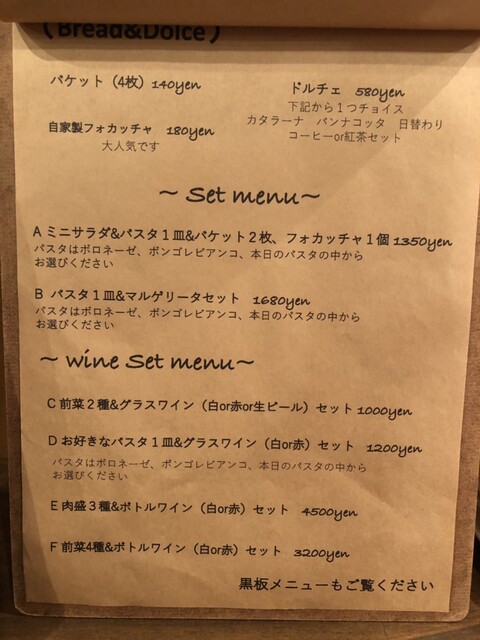 (Bread&Dolce)
バケット（4枚）140yen
自家製フォカッチャ 180yen
大人気です
ドルチェ 580yen
下記から１つチョイス
カタラーナ パンナコッタ 日替わり
コーヒーor紅茶セット
～ Set menu～
A ミニサラダ&パスタ１皿&バケット２枚、フォカッチャ１個 1350yen
パスタはボロネーゼ、ボンゴレビアンコ、本日のパスタの中から
お選びください
B パスタ１皿&マルゲリータセット 1680yen
パスタはボロネーゼ、ボンゴレビアンコ、本日のパスタの中から
お選びください
～ wine Set menu～
C 前菜２種&グラスワイン（白or赤or生ビール）セット 1000yen
D お好きなパスタ１皿&グラスワイン（白or赤）セット 1200yen
パスタはボロネーゼ、ボンゴレビアンコ、本日のパスタの中から
お選びください
E 肉盛３種&ボトルワイン（白or赤）セット 4500yen
F 前菜4種&ボトルワイン（白or赤）セット 3200yen
黒板メニューもご覧ください